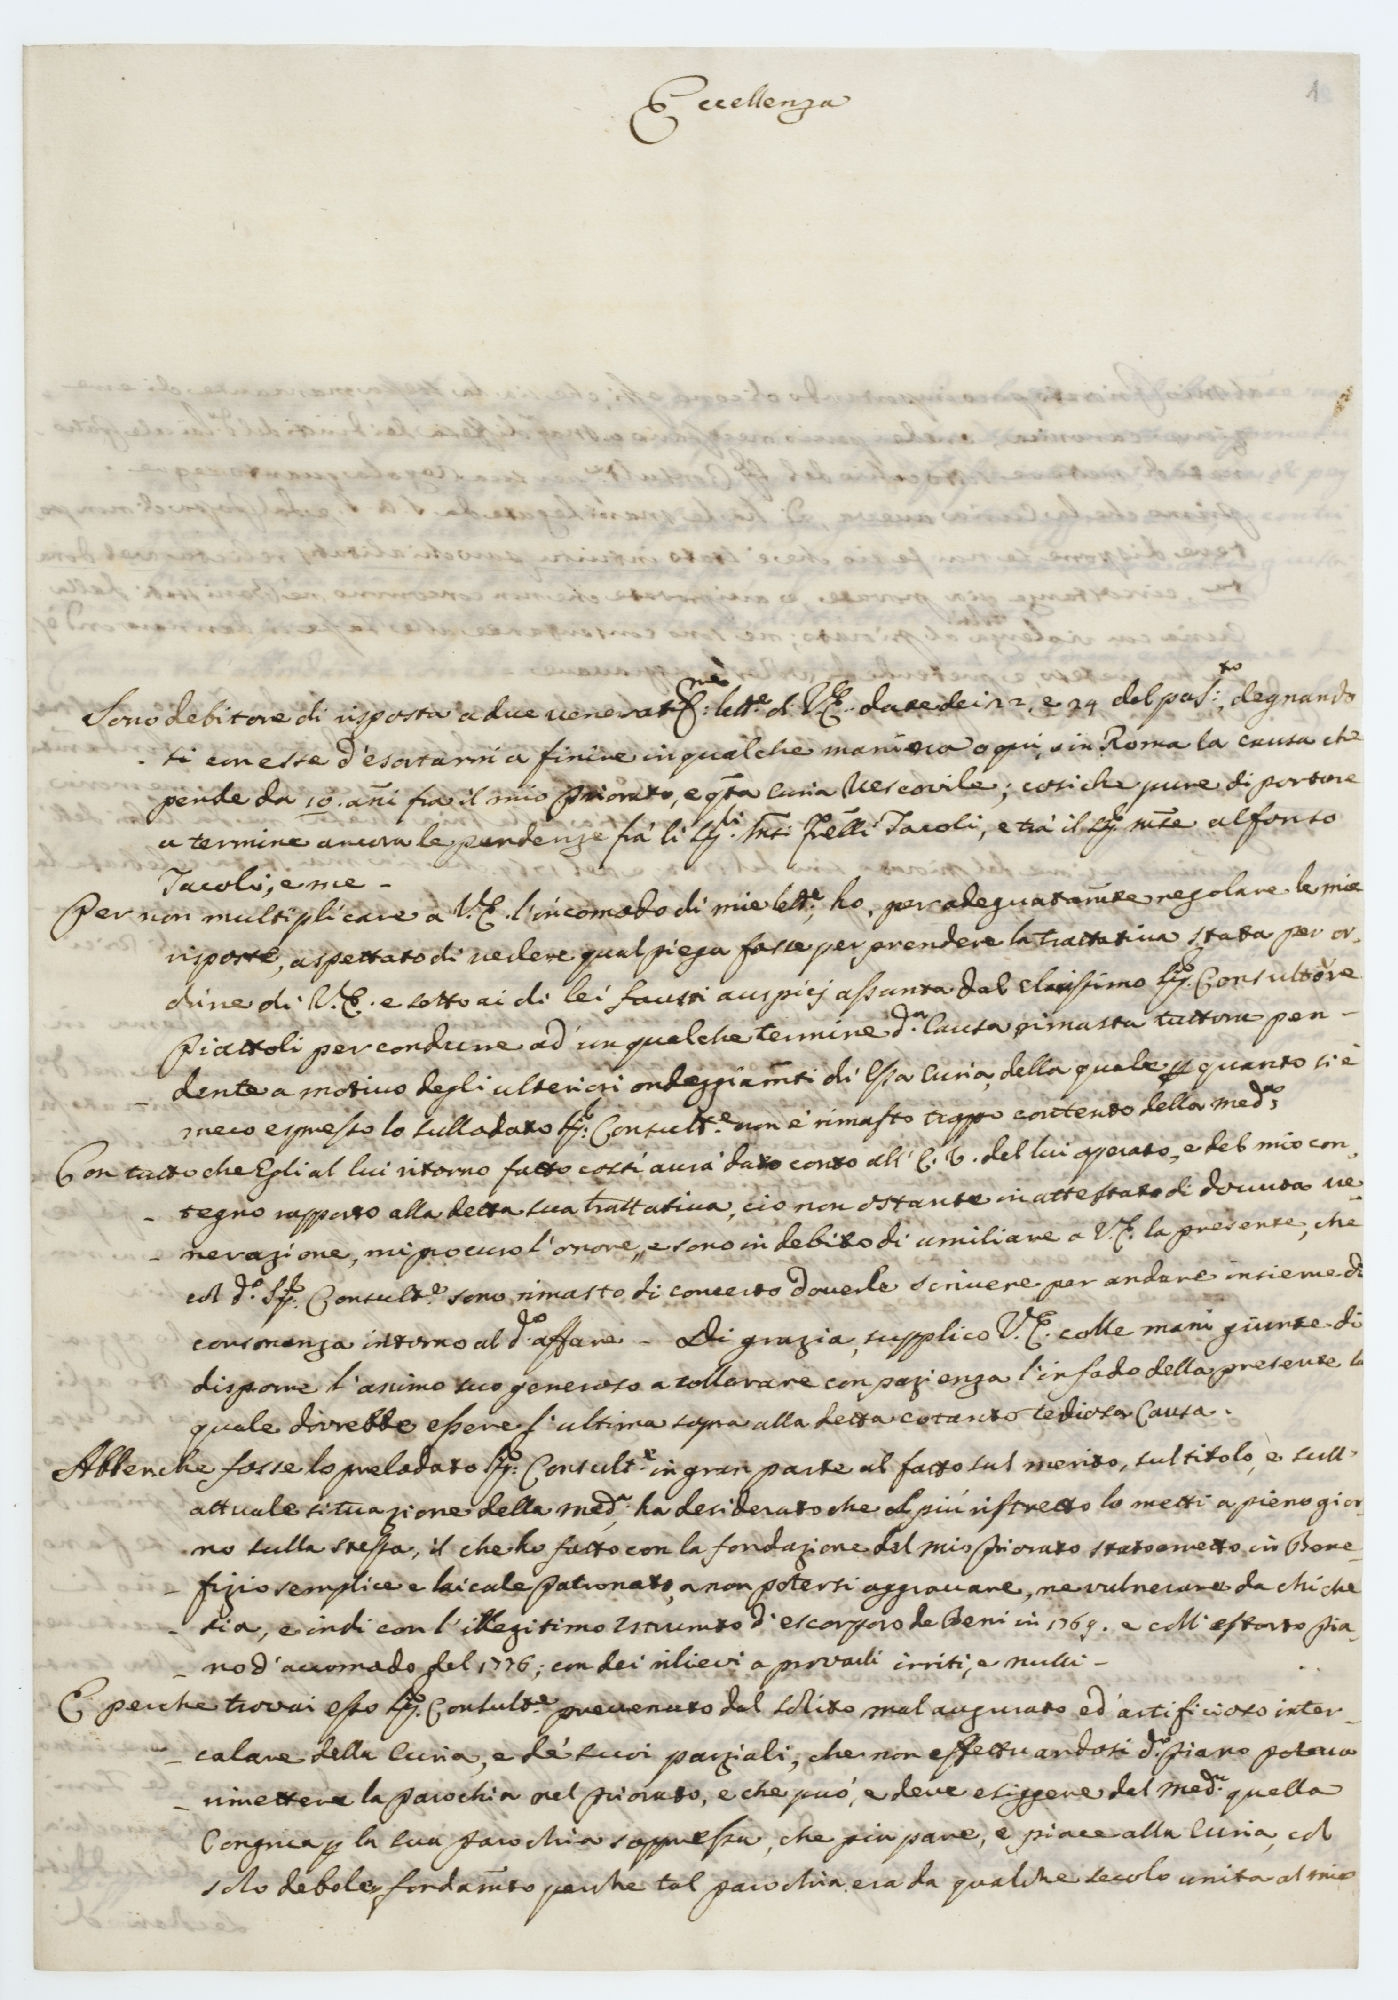 1
Eccellenza
Sono debitore di risposta a due veneratme: lette. di V.E. date dei 22, e 29 del pas:to, degnando
- si con esse d'esortarmi a finire in qualche maniera o qui, o in Roma la causa che
pende da 10. añi fra il mio Priorato, e qta Curia Vescovile; cosi che pure di portare
a termine ancora le pendenze frà li Sigli: frelli Jacoli, e trà il Sig. alfonso
Jacoli, e me -
Per non multiplicare a V.E. l'incomodo di mie lette. ho, per adeguatamte regolare le mie
risposte, aspettato di vedere qual piega fosse per prendere la trattativa stata per or-
dine di V.E. e sotto ai di lei fausti auspicj assunta dal Clarissimo Sig. Consultore
Piattoli per condurre ad un qualche termine da. Causa rimasta tuttora pen-
- dente a motivo degli ulteriori ondeggiamti di essa Curia, della quale p quanto si è
meco espresso lo sullodato Sig. Consulte. non è rimasto troppo contento della meda;
Con tutto che Egli al lui ritorno fatto costì avrà dato conto all' E.V. del lui operato, e del mio con-
- tegno rapporto alla detta sua trattativa, ciò non ostante in attestato di dovuta ve-
- nerazione, mi procuro l'onore, e sono in debito di umiliare a V.E. la presente, che
col do. Sig. Consulte. sono rimasto di concerto doverle scrivere per andare insieme di
consonanza intorno al do. affare - Di grazia, supplico V.E. colle mani giunte di
disporre l'animo suo generoso a tollerare con pazienza l'infado della presente la
quale dovrebbe essere l'ultima sopra alla detta cotanto tediosa Causa.
Abbenche fosse lo prelodato Sig. Consulte. in gran parte al fatto sul merito, sul titolo, e sull'
attuale situazione della meda. ha desiderato che al più ristretto lo metti a pieno gior-
no sulla stessa, il che ho fatto con la fondazione del mio Priorato stato eretto in Bene-
- fizio semplice e laicale Patronato, a non potersi aggravare, ne vulnerare da chi che
- sia, e indi con l'illegitimo Istrumto d'escorporo de Beni in 1769. e coll'estorto Pia-
- no d'accomodo del 1776; con dei rilievi a provarli irriti, e nulli -
E perche trovai esso Sig. Consulte. prevenuto dal solito mal augurato ed artificioso inter-
- calare della Curia, e dè suoi parziali, che non effettuandosi do. Piano poteva
- rimettere la Parochia nel Priorato, e che può, e deve esiggere dal medo. quella
Congrua p la sua Parochia soppressa, che più pare, e piace alla Curia, col
solo debole fondamto perche tal Parochia era da qualche secolo unita al mio